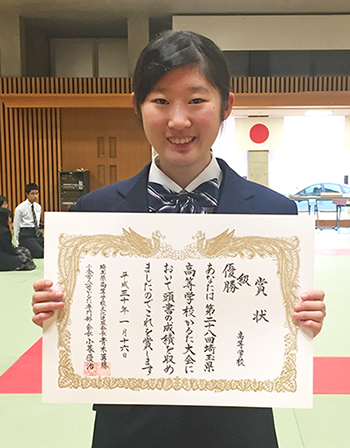 賞状
高等学校
級
優勝
あなたは第二十八回埼玉県
高等学校かるた大会に
おいて頭書の成績を収め
ましたのでこれを賞します
平成三十年一月十六
埼玉県高等学校文化連盟会長 青木勇藤
小倉百人一首かるた専門部会長 小峯優治